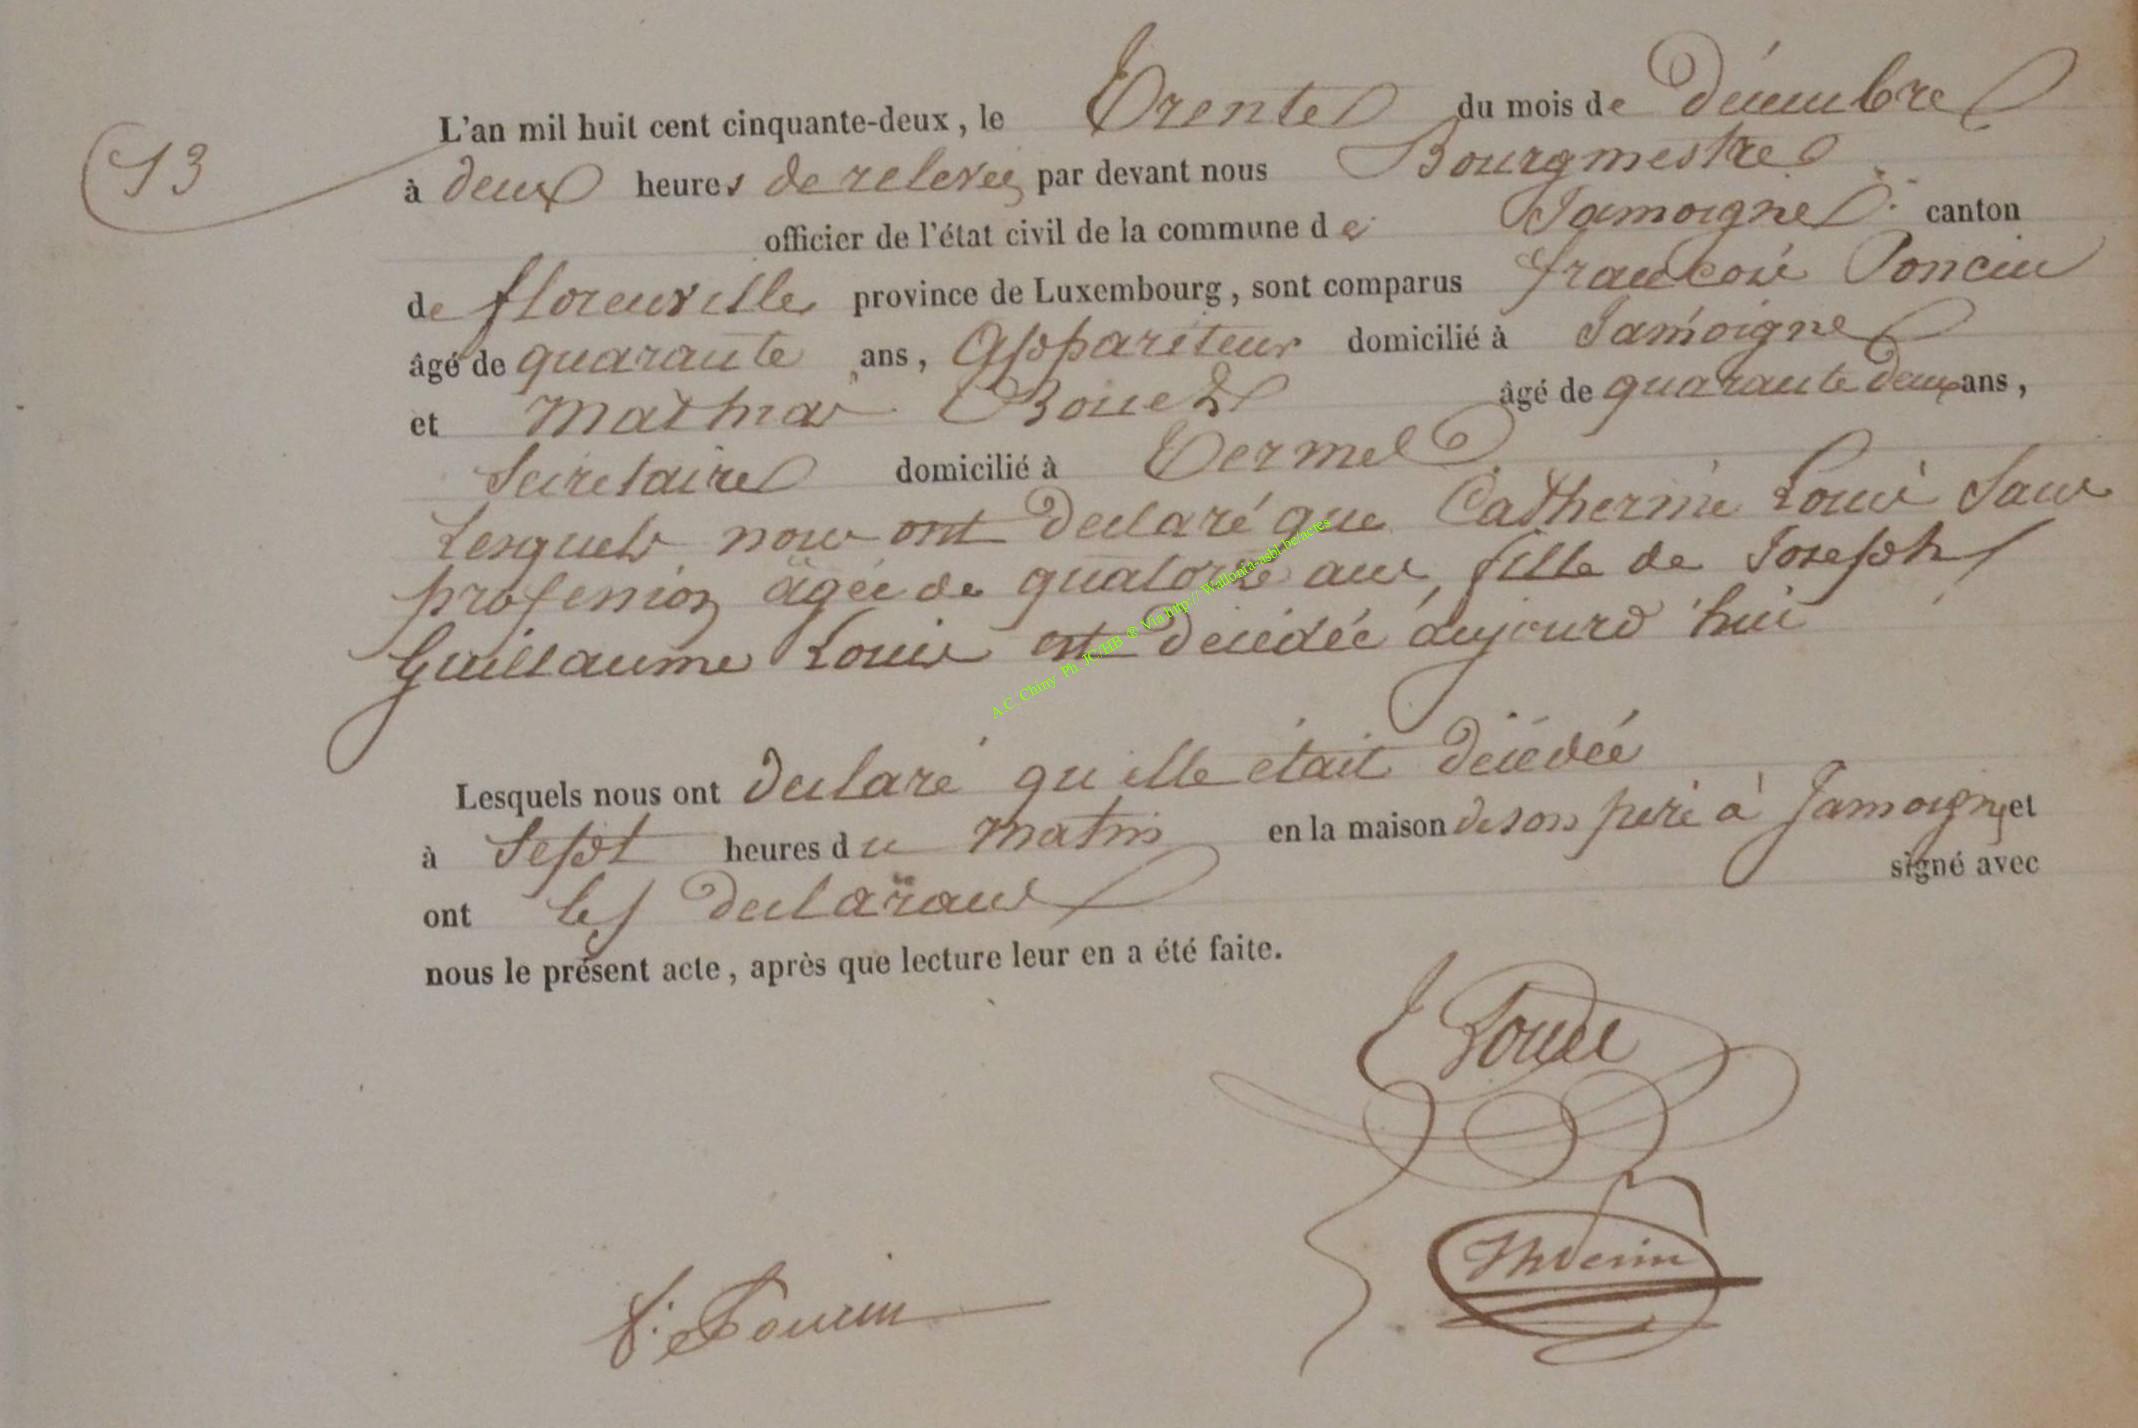 13
L'an mil huit cent cinquante-deux, le Trente du mois de Décembre
à deux heures de relevée par devant nous Bourgmestre
officier de l'état civil de la commune de Jamoigne canton
de florenville province de Luxembourg, sont comparus françois Poncin
âgé de quarante ans, Appariteur domicilié à Jamoigne
et Mathias âgé de quarante deux ans,
Secretaire domicilié à Termes
Lesquels nous ont declaré que Catherine Louis Sans
profession agée de quatorze ans, fille de Joseph
Guillaume Louis est decedée aujourd'hui
Lesquels nous ont declaré qu'elle était décédée
à Sept heures du matin en la maison de son pere à Jamoigne et
ont les declarans signé avec
nous le présent acte, après que lecture leur en a été faite.
f. Poncin
A.C. Chiny Ph JC/HB ® Via http://Wallonia-asbl.be/actes